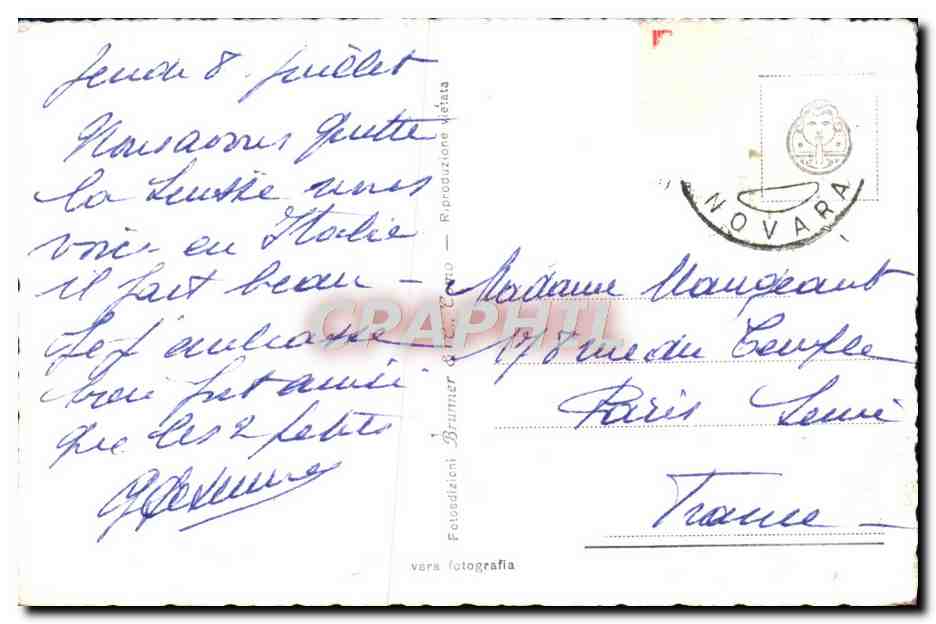 Jeudi 8 Juillet
Nous avons quitté
la Suisse nous
voici en Italie
il fait beau —
Je t'embrasse
bien fort ainsi
que les 2 petits
Fotoedizioni Brunner & C. Como — Riproduzione vietata
NOVARA
Madame Maugeant
178 rue du Temple
Paris
France —
vera fotografia
CRAPHTL